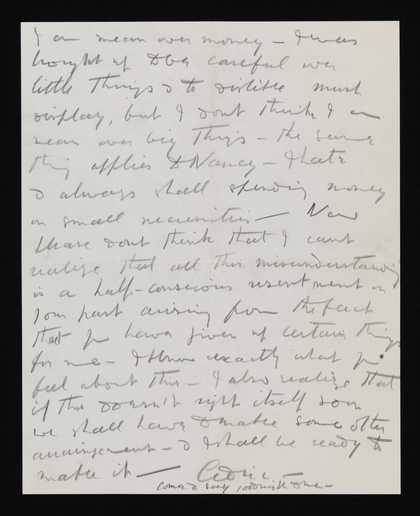 I am mean over money – I was
brought up to be careful over
little things & to dislike much
display, but I dont think I am
mean over big things – the same
thing applies to Nancy – I hate
& always shall spending money
on small necessities – Now
please dont think that I cant
realize that all this misunderstanding
is a half-conscious resentment on
your part arising from the fact
that you have given up certain things
for me – I know exactly what you
feel about this – I also realize that
if this doesn't right itself soon
we shall have to make some other
arrangement – & I shall be ready to
make it – Cedric –
come & see me